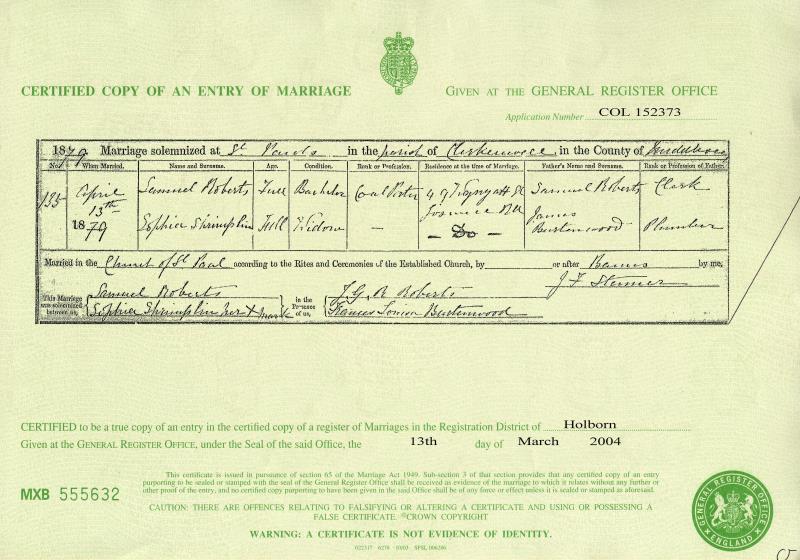 CERTIFIED COPY OF AN ENTRY OF MARRIAGE
GIVEN AT THE GENERAL REGISTER OFFICE
Application Number COL 152373
1879 Marriage solemnized at St. Pauls in the parish of Clerkenwell in the County of Middlesex
No. When Married. Name and Surname. Age. Condition. Rank or Profession. Residence at the time of Marriage. Father's Name and Surname. Rank or Profession of Father.
135 April 13th 1879
Samuel Roberts Full Bachelor Coal Porter 49 Samuel Roberts Clerk
Sophia Shrimplin Full Widow — — Do — James Burtenwood Plumber
Married in the Church of St Paul according to the Rites and Ceremonies of the Established Church, by or after Banns by me,
This Marriage was solemnized between us, Samuel Roberts
Sophia Shrimplin her X mark
in the Presence of us, Roberts
Frances Burtenwood
J F
CERTIFIED to be a true copy of an entry in the certified copy of a register of Marriages in the Registration District of Holborn
Given at the GENERAL REGISTER OFFICE, under the Seal of the said Office, the 13th day of March 2004
MXB 555632
This certificate is issued in pursuance of section 65 of the Marriage Act 1949. Sub-section 3 of that section provides that any certified copy of an entry
purporting to be sealed or stamped with the seal of the General Register Office shall be received as evidence of the marriage to which it relates without any further or
other proof of the entry, and no certified copy purporting to have been given in the said Office shall be of any force or effect unless it is sealed or stamped as aforesaid.
CAUTION: THERE ARE OFFENCES RELATING TO FALSIFYING OR ALTERING A CERTIFICATE AND USING OR POSSESSING A
FALSE CERTIFICATE. ©CROWN COPYRIGHT
WARNING: A CERTIFICATE IS NOT EVIDENCE OF IDENTITY.
GENERAL REGISTER OFFICE
ENGLAND